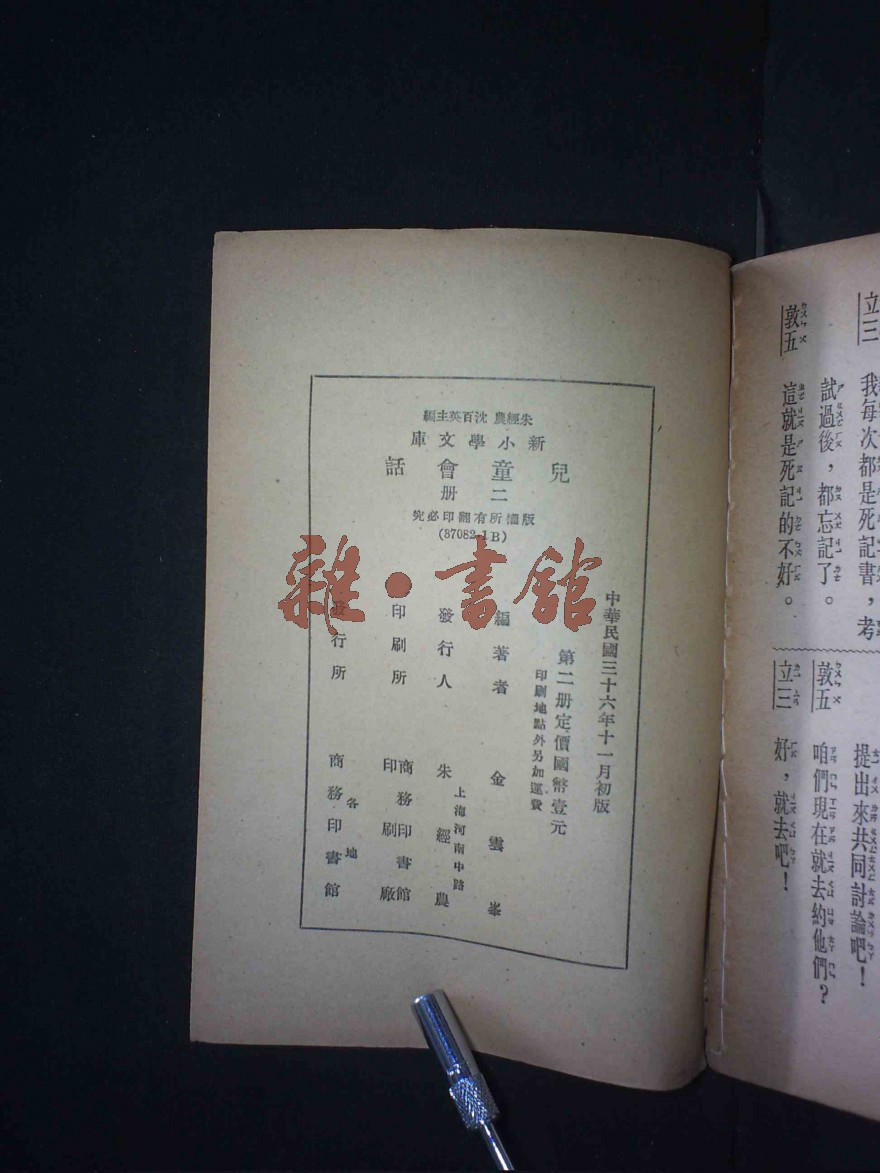 立三 我每次都是死記書，考
試過後，都忘記了。
敦五 這就是死記的不好。
提出來共同討論吧！
敦五 咱們現在就去約他們？
立三 好，就去吧！
朱經農 沈百英主編
新小學文庫
兒童會話
二册
版權所有翻印必究
(87082·1B)
中華民國三十六年十一月初版
第二册定價國幣壹元
印刷地點外另加運費
編著者 金雲峯
上海河南中路
發行人 朱經農
印刷所 商務印書館
印刷廠
各地
發行所 商務印書館
雜·書館